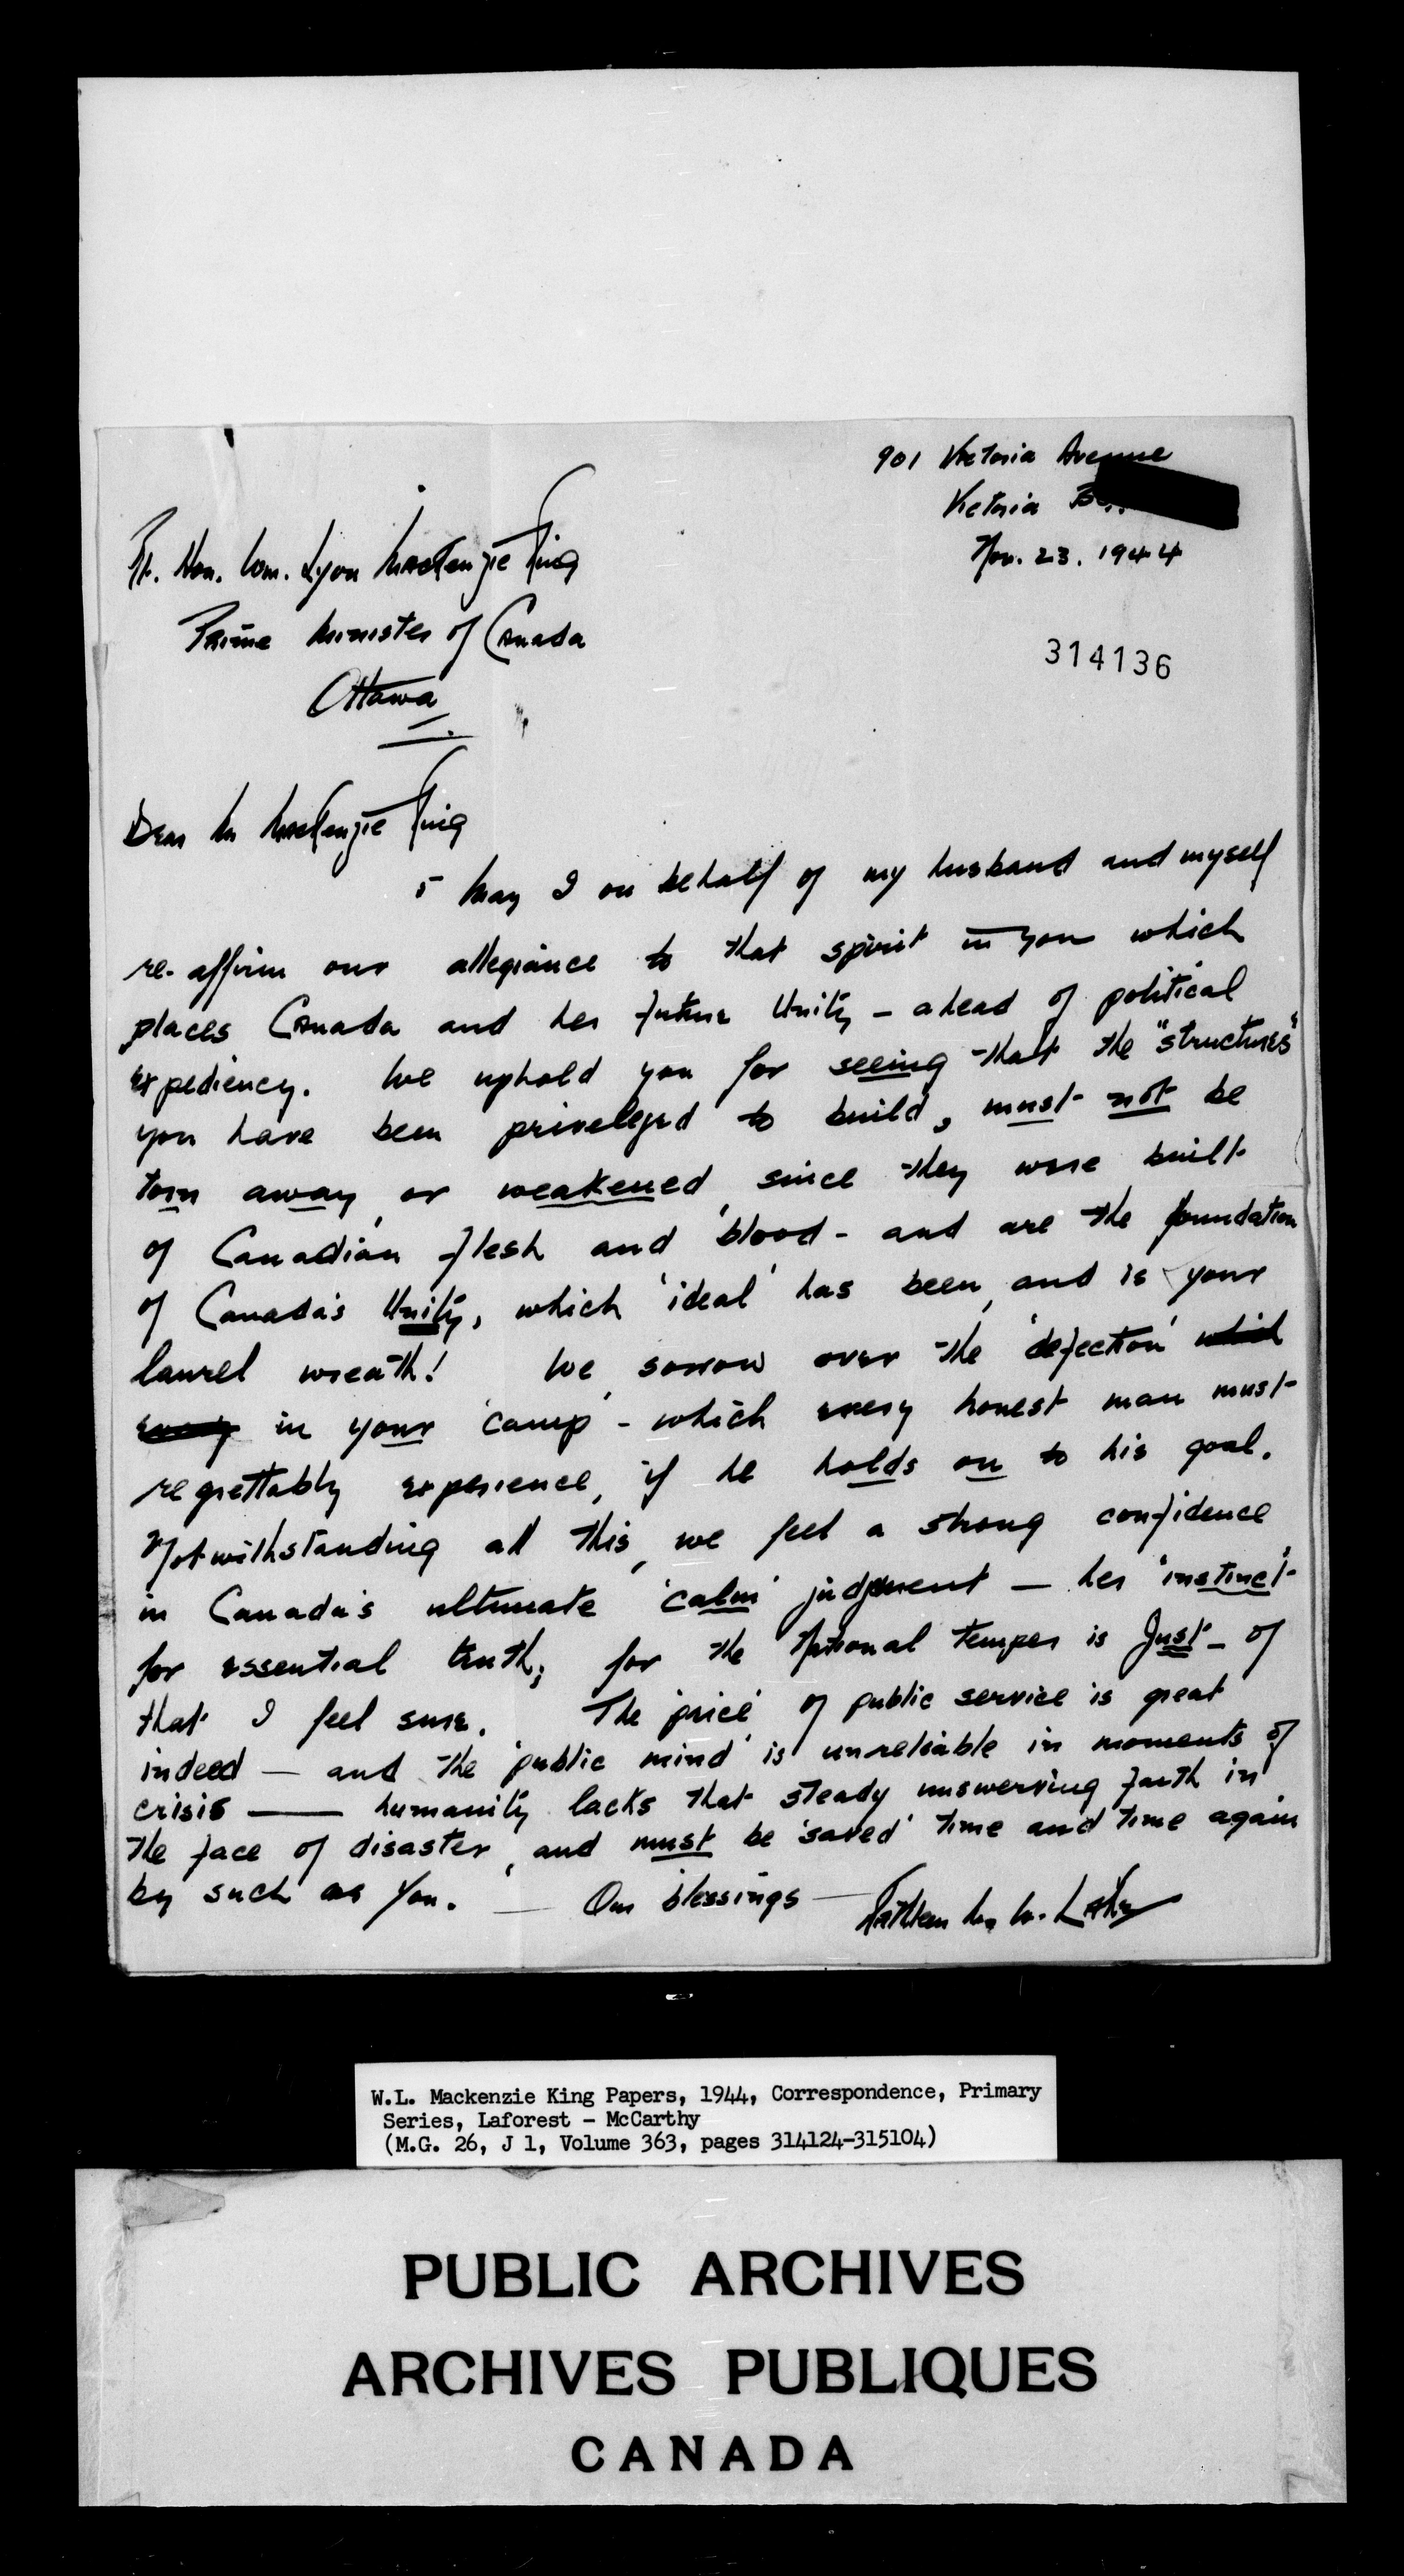 901 Victoria Avenue
Victoria B.C.
Nov. 23. 1944
Rt. Hon. Wm. Lyon MacKenzie King
Prime Minister of Canada
Ottawa
314136
Dear Mr MacKenzie King
May I on behalf of my husband and myself
re-affirm our allegiance to that spirit in you which
places Canada and her future Unity - ahead of political
expediency. We uphold you for seeing that the "structures"
you have been priveleged to build, must not be
torn away, or weakened, since they were built
of Canadian flesh and blood - and are the foundation
of Canada's Unity, which 'ideal' has been, and is your
laurel wreath! We sorrow over the 'defection' which
every in your 'camp' - which every honest man must
regrettably experience, if he holds on to his goal.
Notwithstanding all this, we feel a strong confidence
in Canada's ultimate 'calm' judgment — her 'instinct'
for essential truth; for the National temper is Just - of
that I feel sure. The 'price' of public service is great
indeed — and the 'public mind' is unreliable in moments of
crisis — humanity lacks that steady unswerving faith in
the face of disaster, and must be 'saved' time and time again
by such as you. — Our blessings —
Kathleen M. W.
W.L. Mackenzie King Papers, 1944, Correspondence, Primary
Series, Laforest - McCarthy
(M.G. 26, J 1, Volume 363, pages 314124-315104)
PUBLIC ARCHIVES
ARCHIVES PUBLIQUES
CANADA